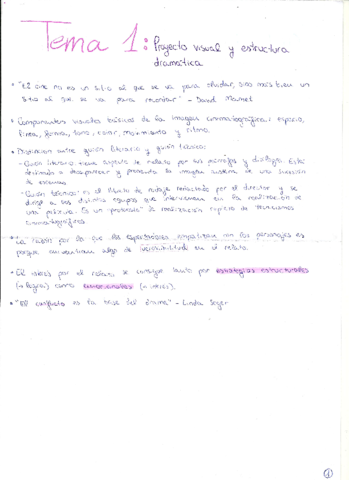 Tema 1: Proyecto visual y estructura
dramática
• "El cine no es un sitio al que se va para olvidar, sino más bien un
sitio al que se va para recordar" - David Mamet
• Componentes visuales básicos de la imagen cinematográfica: espacio,
línea, forma, tono, color, movimiento y ritmo.
• Distinción entre guión literario y guión técnico:
- Guión literario: tiene aspecto de relato por sus párrafos y diálogos. Está
destinado a desaparecer y presenta la imagen de una
- "Guión técnico" es el de trabajo redactado por el director y se
dirige a los distintos equipos que intervienen en la realización de
una película. Es un de realización de
cinematográficas
• La razón por la que los espectadores empatizan con los personajes es
porque encuentran algo de en el relato.
• El interés por el relato se consigue tanto por estrategias estructurales
(+ lógica) como emocionales
• "El conflicto es la base del drama" - Linda Seger
1